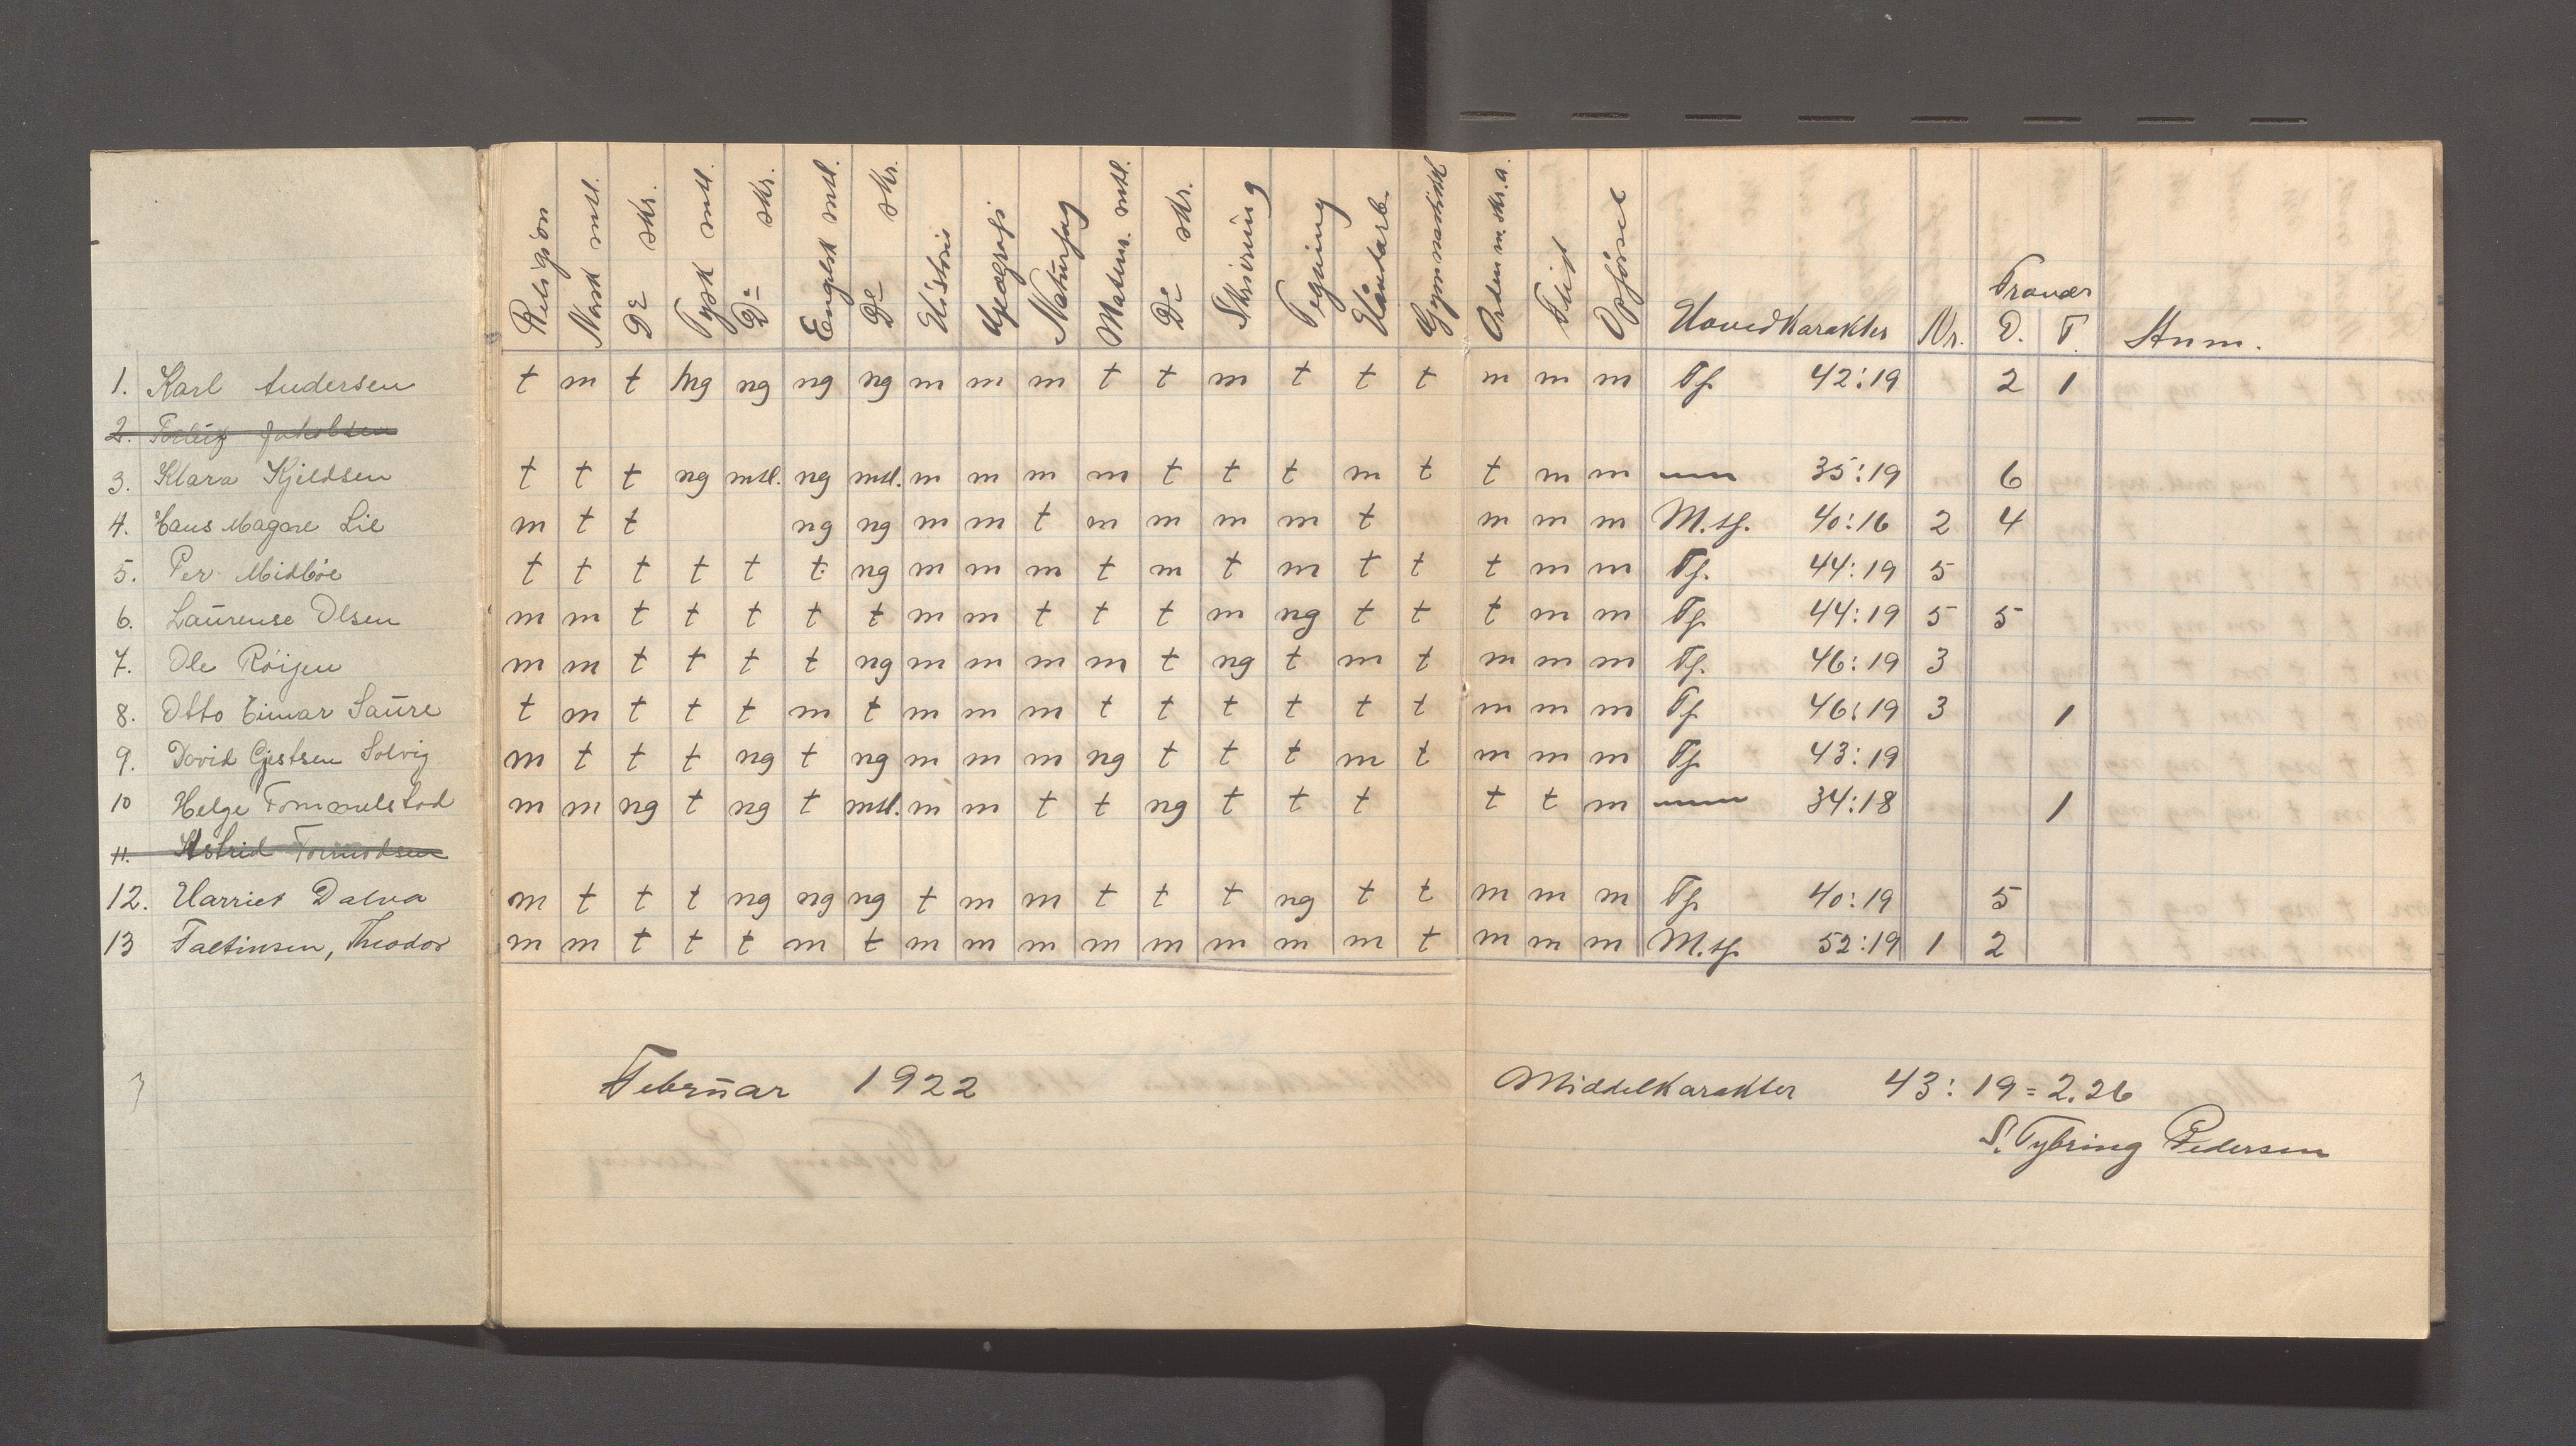 Religion Norsk mtl. Do skr. Tysk mtl. Do skr. Engelsk mtl. Do skr. Historie Geografi Naturfag Matem. mtl. Do skr. Skrivning Tegning Håndarb. Gymnastikk Orden m. skr. a. Flid Opførsel Hovedkarakter Nr. Fravær D. T. Anm.
1. Karl Andersen t m t mg ng ng ng m m m t t m t t t m m m Tf. 42:19 2 1
2. Jakobsen
3. Klara Kjeldsen t t t ng mtl. ng mtl. m m m m t t t m t t m m — 35:19 6
4. Hans Magore Lie m t t ng ng m m t m m m m t m m m M.tf. 40:16 2 4
5. Per Midbøe t t t t t t. ng m m m t m t m t t t m m Tf. 44:19 5
6. Laurense Olsen m m t t t t t m m t t t m ng t t t m m Tf. 44:19 5 5
7. Ole Röijen m m t t t t ng m m m m t ng t m t m m m Tf. 46:19 3
8. Otto Einar Saure t m t t t m t m m m t t t t t t m m m Tf 46:19 3 1
9. David Gjestsen Solvig m t t t ng t ng m m m ng t t t m t m m m Tf. 43:19
10 Helge Tommelstad m m ng t ng t mtl. m m t t ng t t t t t m — 34:18 1
11. Astrid Tormodsen
12. Harriet Dalva m t t t ng ng ng t m m t t t ng t t m m m Tf. 40:19 5
13 Taltinsen, Theodor m m t t t m t m m m m m m m m t m m m M.tf. 52:19 1 2
Februar 1922
Middelkarakter 43:19=2.26
S. Tybring Pedersen